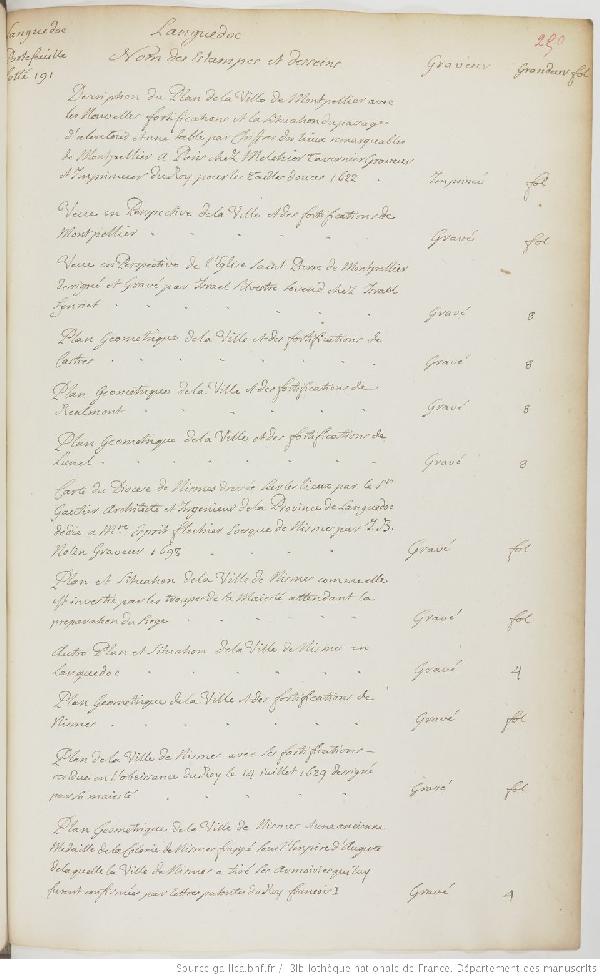 Languedoc
Languedoc
290
Portefeuille
Cotté 191
Nom des Estampes et desseins
Graveur
Grandeur fol
Description du Plan de la Ville de Montpellier avec
les Nouvelles fortifications et la situation du paysage
d'alentour et une table par Chiffre des lieux remarquables
de Montpellier A Paris chez Melchior Tavernier Graveur
et Imprimeur du Roy pour les Tailles douces 1622
Imprimé fol
Veue en Perspective de la Ville et des fortifications de
Montpellier
Gravé fol
Veue en Perspective de l'Eglise Saint Pierre de Montpellier
designé et Gravé par Israel Silvestre se vend chez Israel
henriet
Gravé 8
Plan Geometrique de la Ville et des fortifications de
Castres
Gravé 8
Plan Geometrique de la Ville et des fortifications de
Realmont
Gravé 8
Plan Geometrique de la Ville et des fortifications de
Lunel
Gravé 8
Carte du Diocese de Nismes dressée sur les lieux par le Sr
Gautier Architecte et Ingenieur de la Province de Languedoc
dediée a Mre Esprit flechier Evesque de Nismes par J. B.
Nolin Graveur 1698
Gravé fol
Plan et Situation de la Ville de Nismes comme elle
est investie par les troupes de sa Majesté attendant la
preparation du siege
Gravé fol
Autre Plan et Situation de la Ville de Nismes en
Languedoc
Gravé 4
Plan Geometrique de la Ville et des fortifications de
Nismes
Gravé fol
Plan de la Ville de Nismes avec ses fortifications
rendue en l'obeissance du Roy le 14 juillet 1629 designé
par sa majesté
Gravé fol
Plan Geometrique de la Ville de Nismes d'une ancienne
Medaille de la Colonie de Nismes frappé sous l'Empire d'Auguste
de laquelle la Ville de Nismes a tiré ses armoiries qui luy
furent confirmées par lettres patentes du Roy francois I
Gravé 4
Source gallica.bnf.fr / Bibliothèque nationale de France. Département des manuscrits